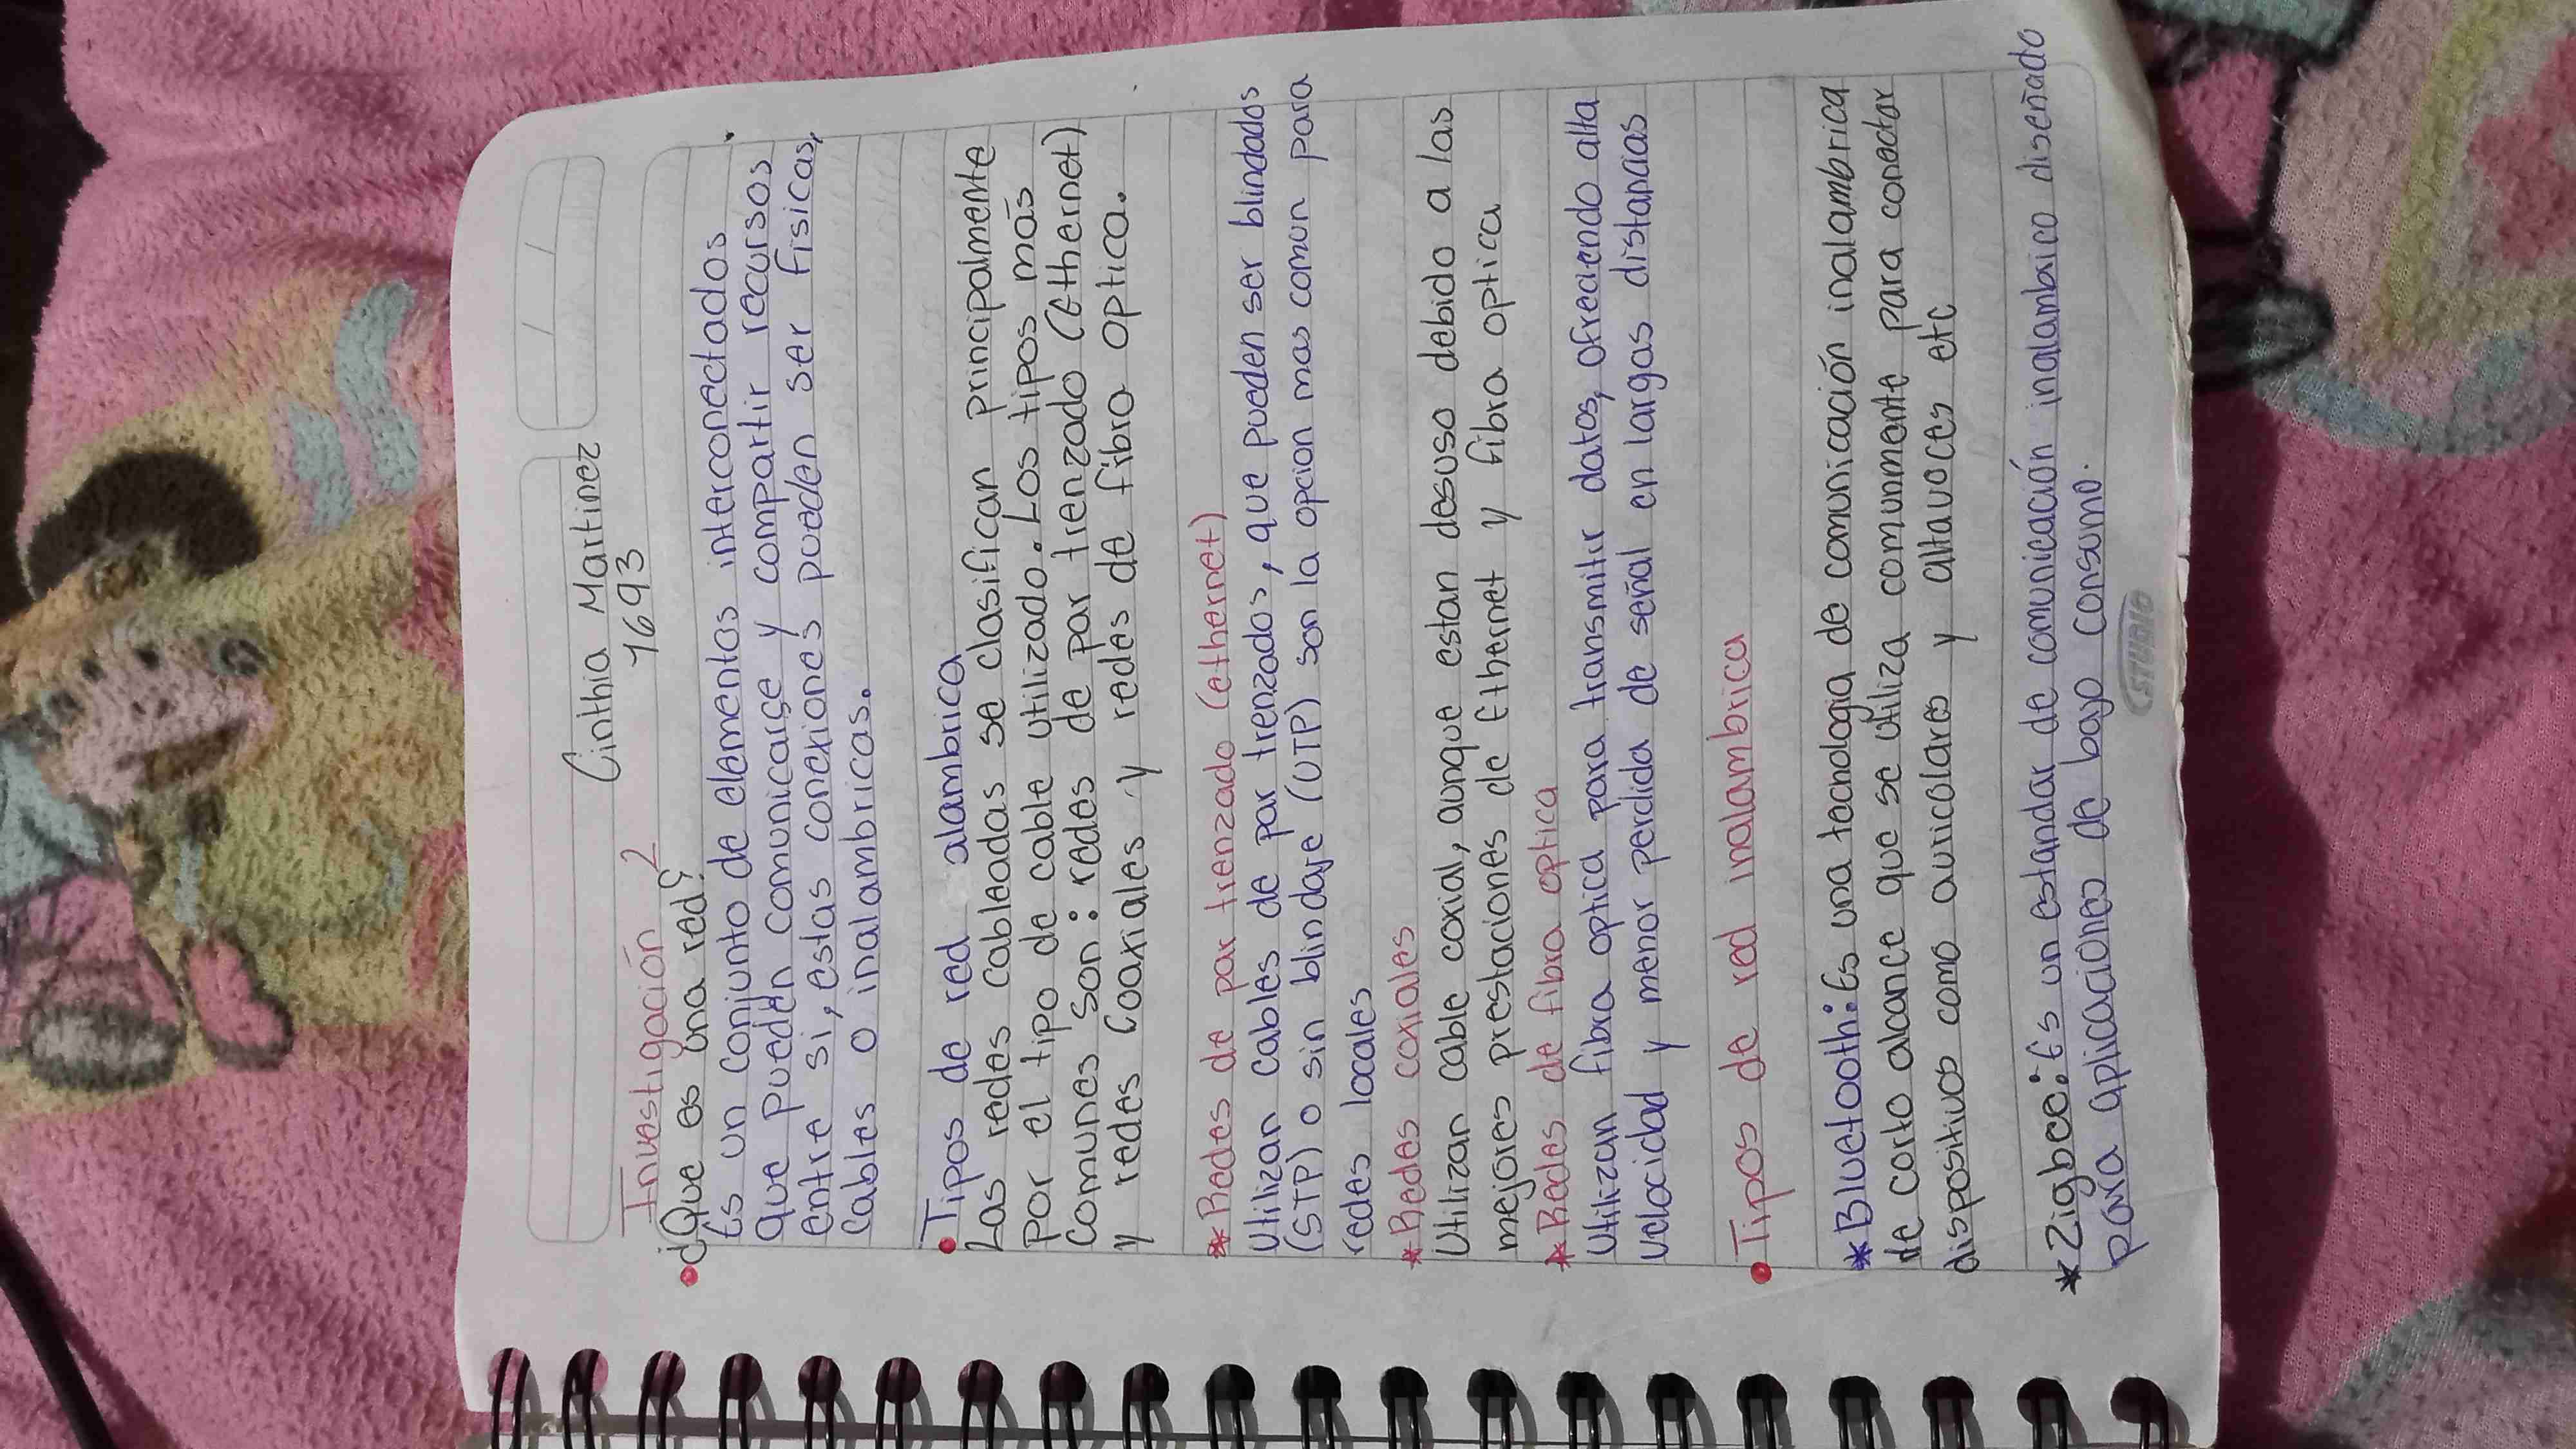 Cinthia Martinez
7693
Investigación 2
¿Que es una red?
Es un conjunto de elementos interconectados
que pueden comunicarse y compartir recursos
entre si, estas conexiones pueden ser fisicas,
cables o inalambricas.
Tipos de red alambrica
Las redes cableadas se clasifican principalmente
por el tipo de cable utilizado. Los tipos más
comunes son: redes de par trenzado (Ethernet)
y redes Coaxiales y redes de fibra optica.
*Redes de par trenzado (ethernet)
Utilizan cables de par trenzados, que pueden ser blindados
(STP) o sin blindaje (UTP) son la opcion mas comun para
redes locales
*Redes coxiales
Utilizan cable coxial, aunque estan desuso debido a las
mejores prestaciones de Ethernet y fibra optica
*Redes de fibra optica
Utilizan fibra optica para transmitir datos, ofreciendo alta
velocidad y menor perdida de señal en largas distancias
Tipos de red inalambrica
*Bluetooth: Es una tecnologia de comunicación inalambrica
de corto alcance que se utiliza comunmente para conectar
dispositivos como auricolares y altavoces etc
*Zigbee: Es un estandar de comunicación inalambrico diseñado
para aplicaciones de bajo consumo.
STUDIO